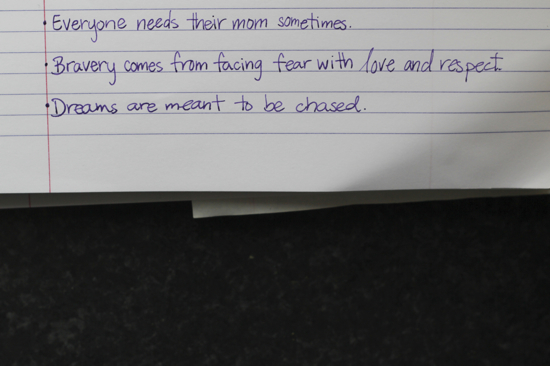 • Everyone needs their mom sometimes.
• Bravery comes from facing fear with love and respect
• Dreams are meant to be chased.